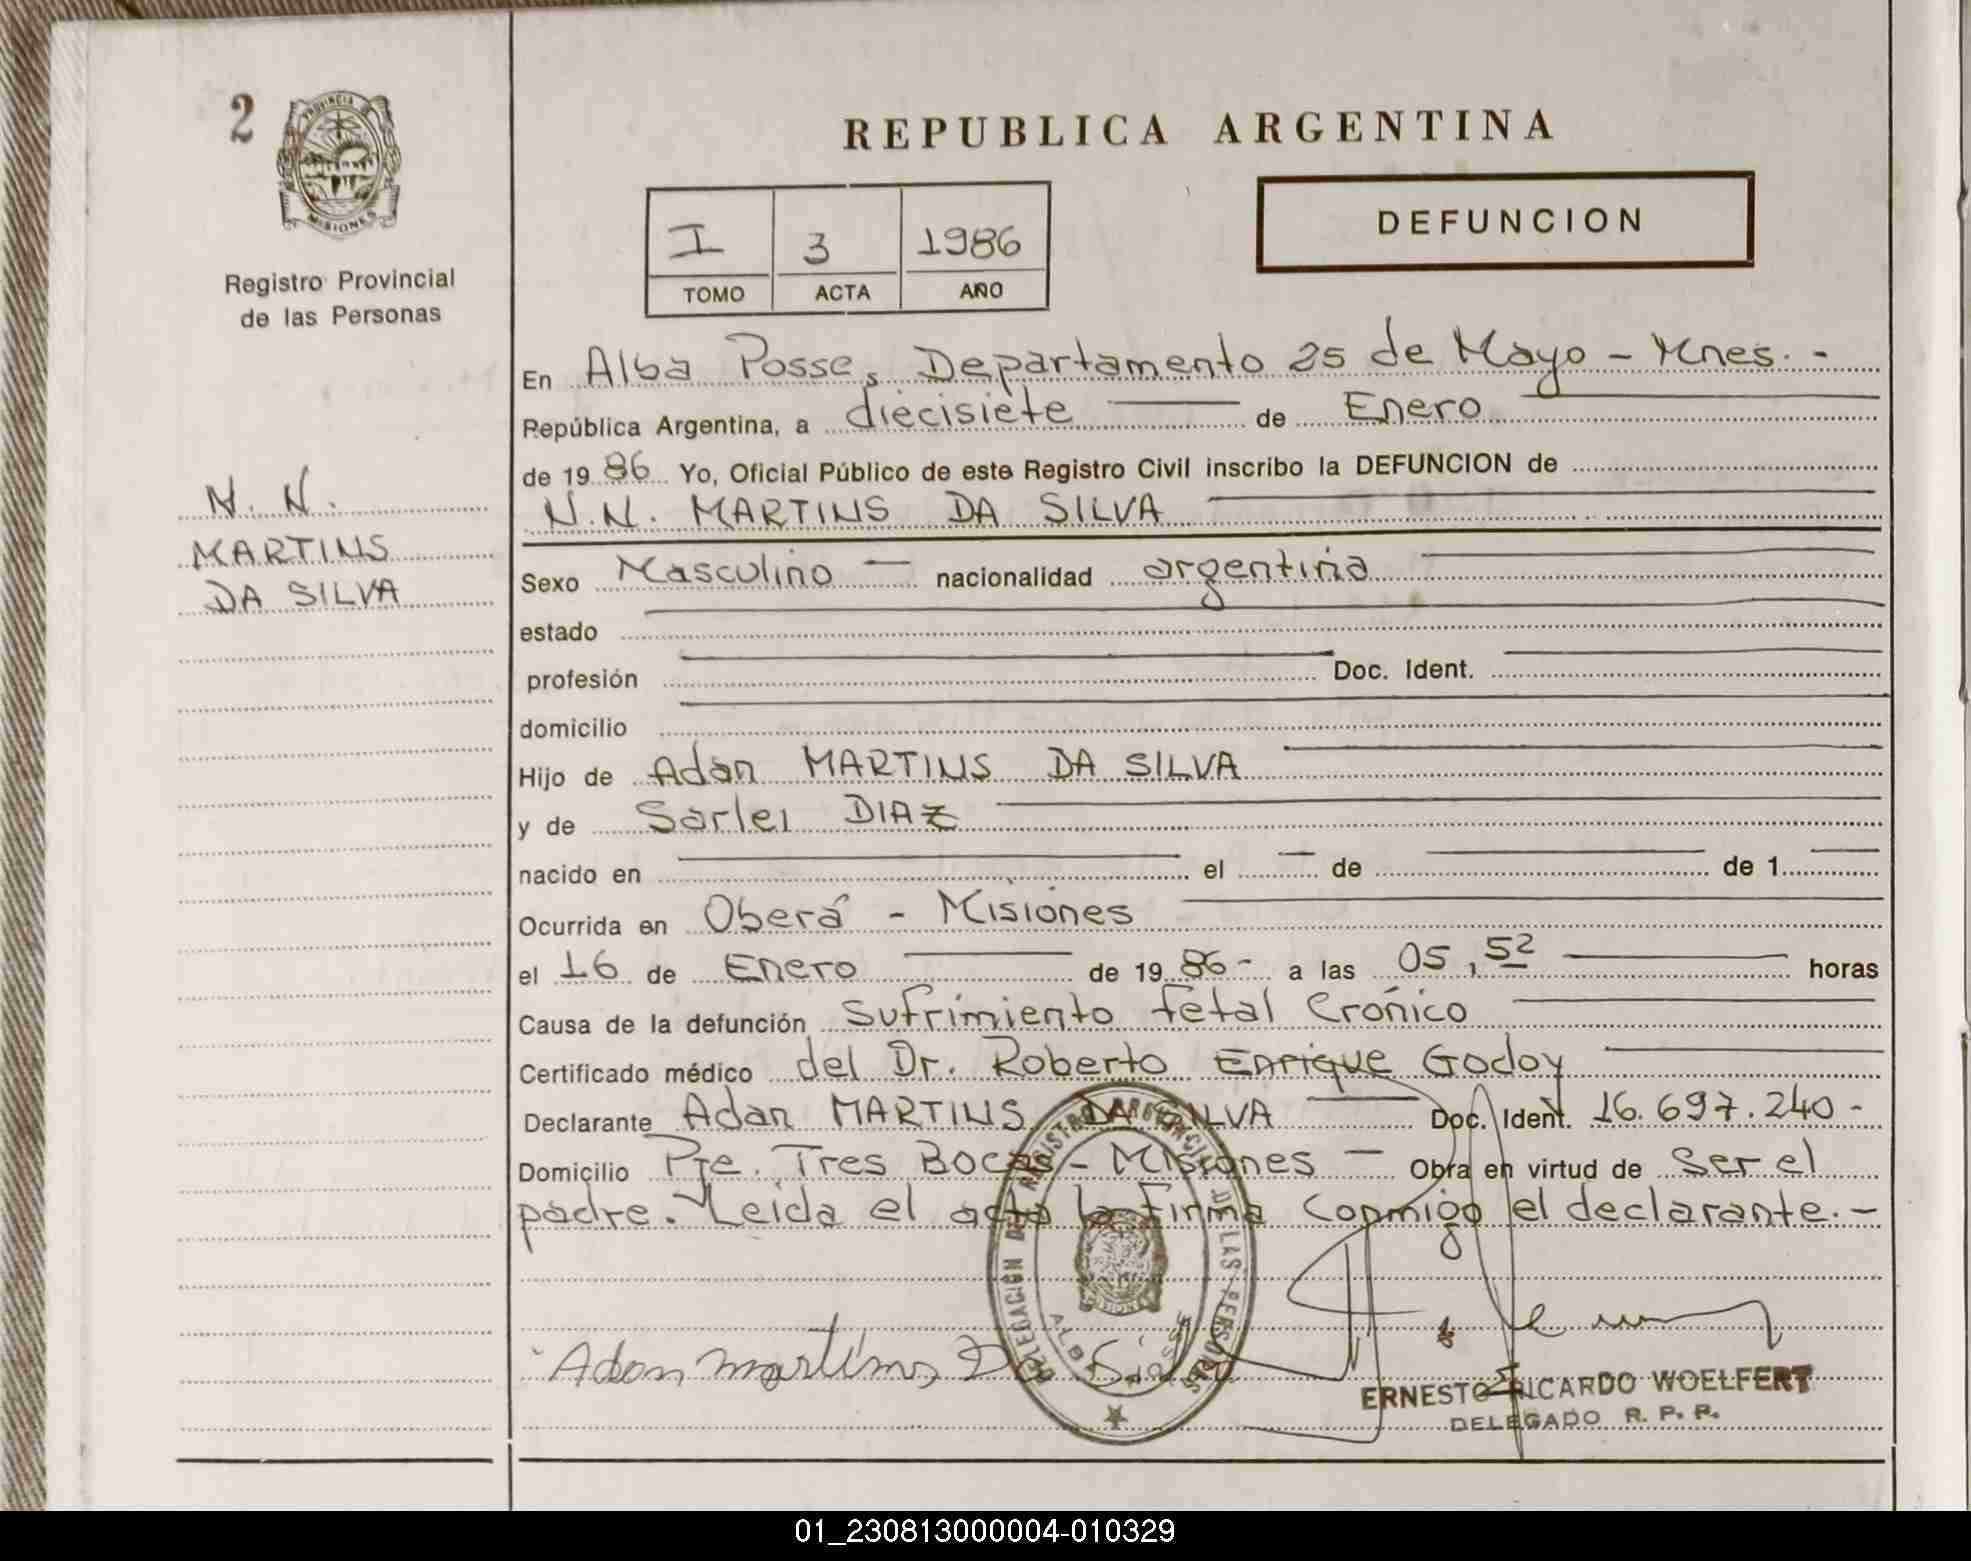 2
PROVINCIA
MISIONES
Registro Provincial
de las Personas
N. N.
MARTINS
DA SILVA
REPUBLICA ARGENTINA
I 3 1986
TOMO ACTA AÑO
DEFUNCION
En Alba Posse, Departamento 25 de Mayo - Mnes. -
República Argentina, a diecisiete de Enero
de 1986 Yo, Oficial Público de este Registro Civil inscribo la DEFUNCION de
N.N. MARTINS DA SILVA
Sexo Masculino nacionalidad argentina
estado
profesión Doc. Ident.
domicilio
Hijo de Adan MARTINS DA SILVA
y de Sarlei DIAZ
nacido en el de de 1
Ocurrida en Oberá - Misiones
el 16 de Enero de 1986- a las 05,52 horas
Causa de la defunción Sufrimiento fetal Crónico
Certificado médico del Dr. Roberto Enrique Godoy
Declarante Adan MARTINS DA SILVA Doc. Ident. 16.697.240-
Domicilio Pje. Tres Bocas - Misiones - Obra en virtud de ser el
padre. Leida el acta la firma conmigo el declarante. -
DELEGACION DEL REGISTRO PROVINCIAL DE LAS PERSONAS
ALBA POSSE
Adan martins Da Silva
ERNESTO RICARDO WOELFERT
DELEGADO R. P. P.
01_230813000004-010329